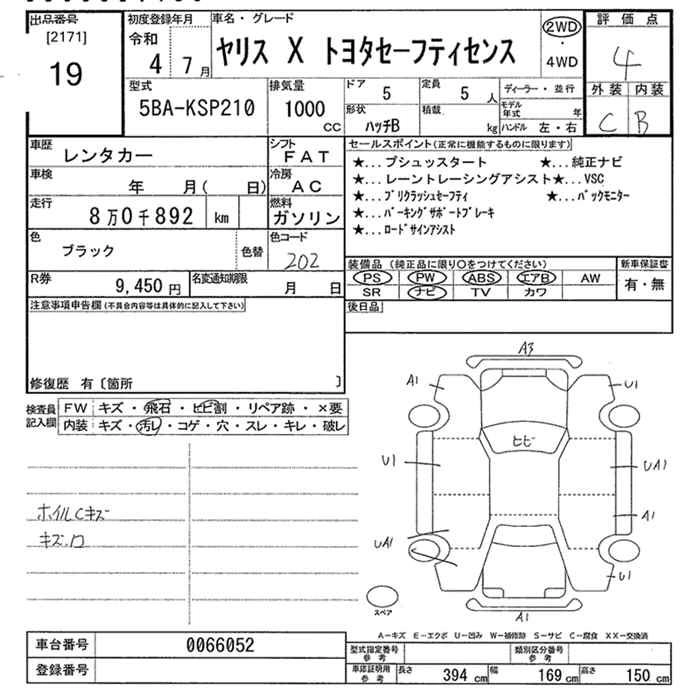 出品番号
[2171]
19
初度登録年月
令和
4 7月
車名・グレード
ヤリス X トヨタセーフティセンス
2WD
・
4WD
評価点
4
外装 内装
C B
型式
5BA-KSP210
排気量
1000
CC
ドア
5
定員
5 人
形状
ハッチB
積載
kg
ディーラー・並行
モデル年式 年
ハンドル 左・右
車歴
レンタカー
シフト
FAT
車検
年 月( 日)
冷房
AC
走行
8万0千892 km
燃料
ガソリン
色
ブラック
色替
色コード
202
R券
9,450円
名変通知期限
月 日
セールスポイント(正常に機能するものに限ります)
★...プシュッスタート ★...純正ナビ
★...レーントレーシングアシスト★...VSC
★...プリクラッシュセーフティ ★...バックモニター
★...パーキングサポートブレーキ
★...ロードサインアシスト
装備品(純正品に限り○をつけてください)
PS PW ABS エアB AW
SR ナビ TV カワ
新車保証書
有・無
注意事項申告欄(不具合内容等は具体的に記入して下さい)
後日品
修復歴 有〔箇所 〕
検査員記入欄
FW キズ・飛石・ヒビ割・リペア跡・×要
内装 キズ・汚レ・コゲ・穴・スレ・キレ・破レ
ホイルCキズ
キズ.口
A3
A1
U1
ヒビ
U1
UA1
A1
UA1
U1
スペア
A1
A-キズ E-エクボ U-凹み W-補修跡 S-サビ C-腐食 XX-交換済
車台番号 0066052
登録番号
型式指定番号
参考
類別区分番号
参考
車庫証明用
参考
長さ 394 cm 幅 169 cm 高さ 150 cm